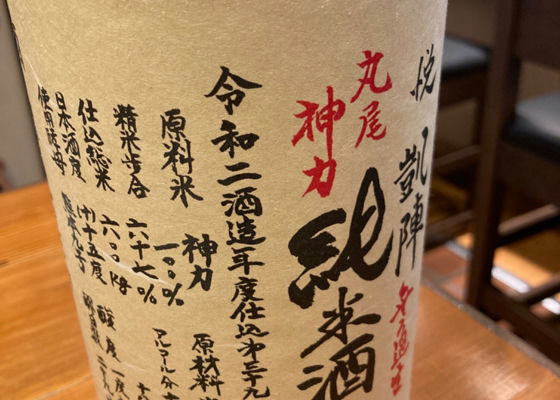 悦 凱陣
丸尾
神力
純米酒
令和二酒造年度仕込第三十九
原料米 神力 一〇〇%
精米歩合 六十七%
仕込総米 六〇〇kg
日本酒度 (+)十五度
使用酵母 熊本九号
原材料
アルコール分
酸度